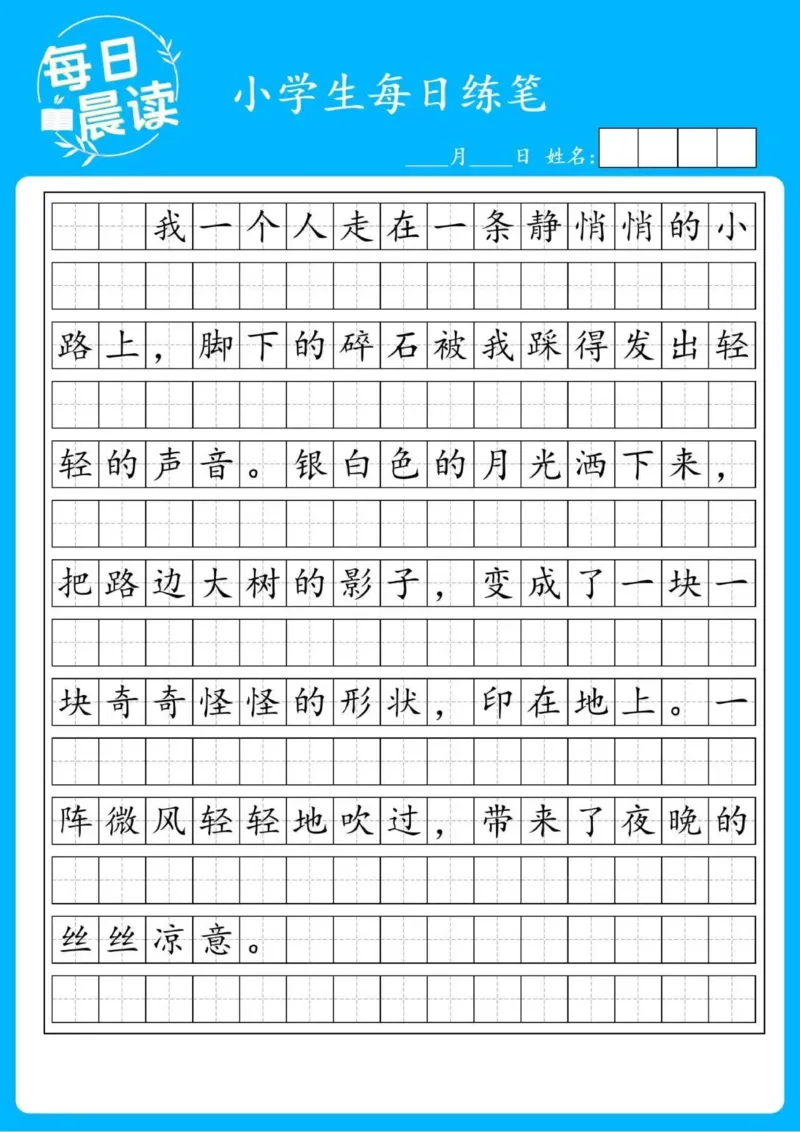 每日
晨读
小学生每日练笔
____月____日 姓名:
我一个人走在一条静悄悄的小
路上，脚下的碎石被我踩得发出轻
轻的声音。银白色的月光洒下来，
把路边大树的影子，变成了一块一
块奇奇怪怪的形状，印在地上。一
阵微风轻轻地吹过，带来了夜晚的
丝丝凉意。